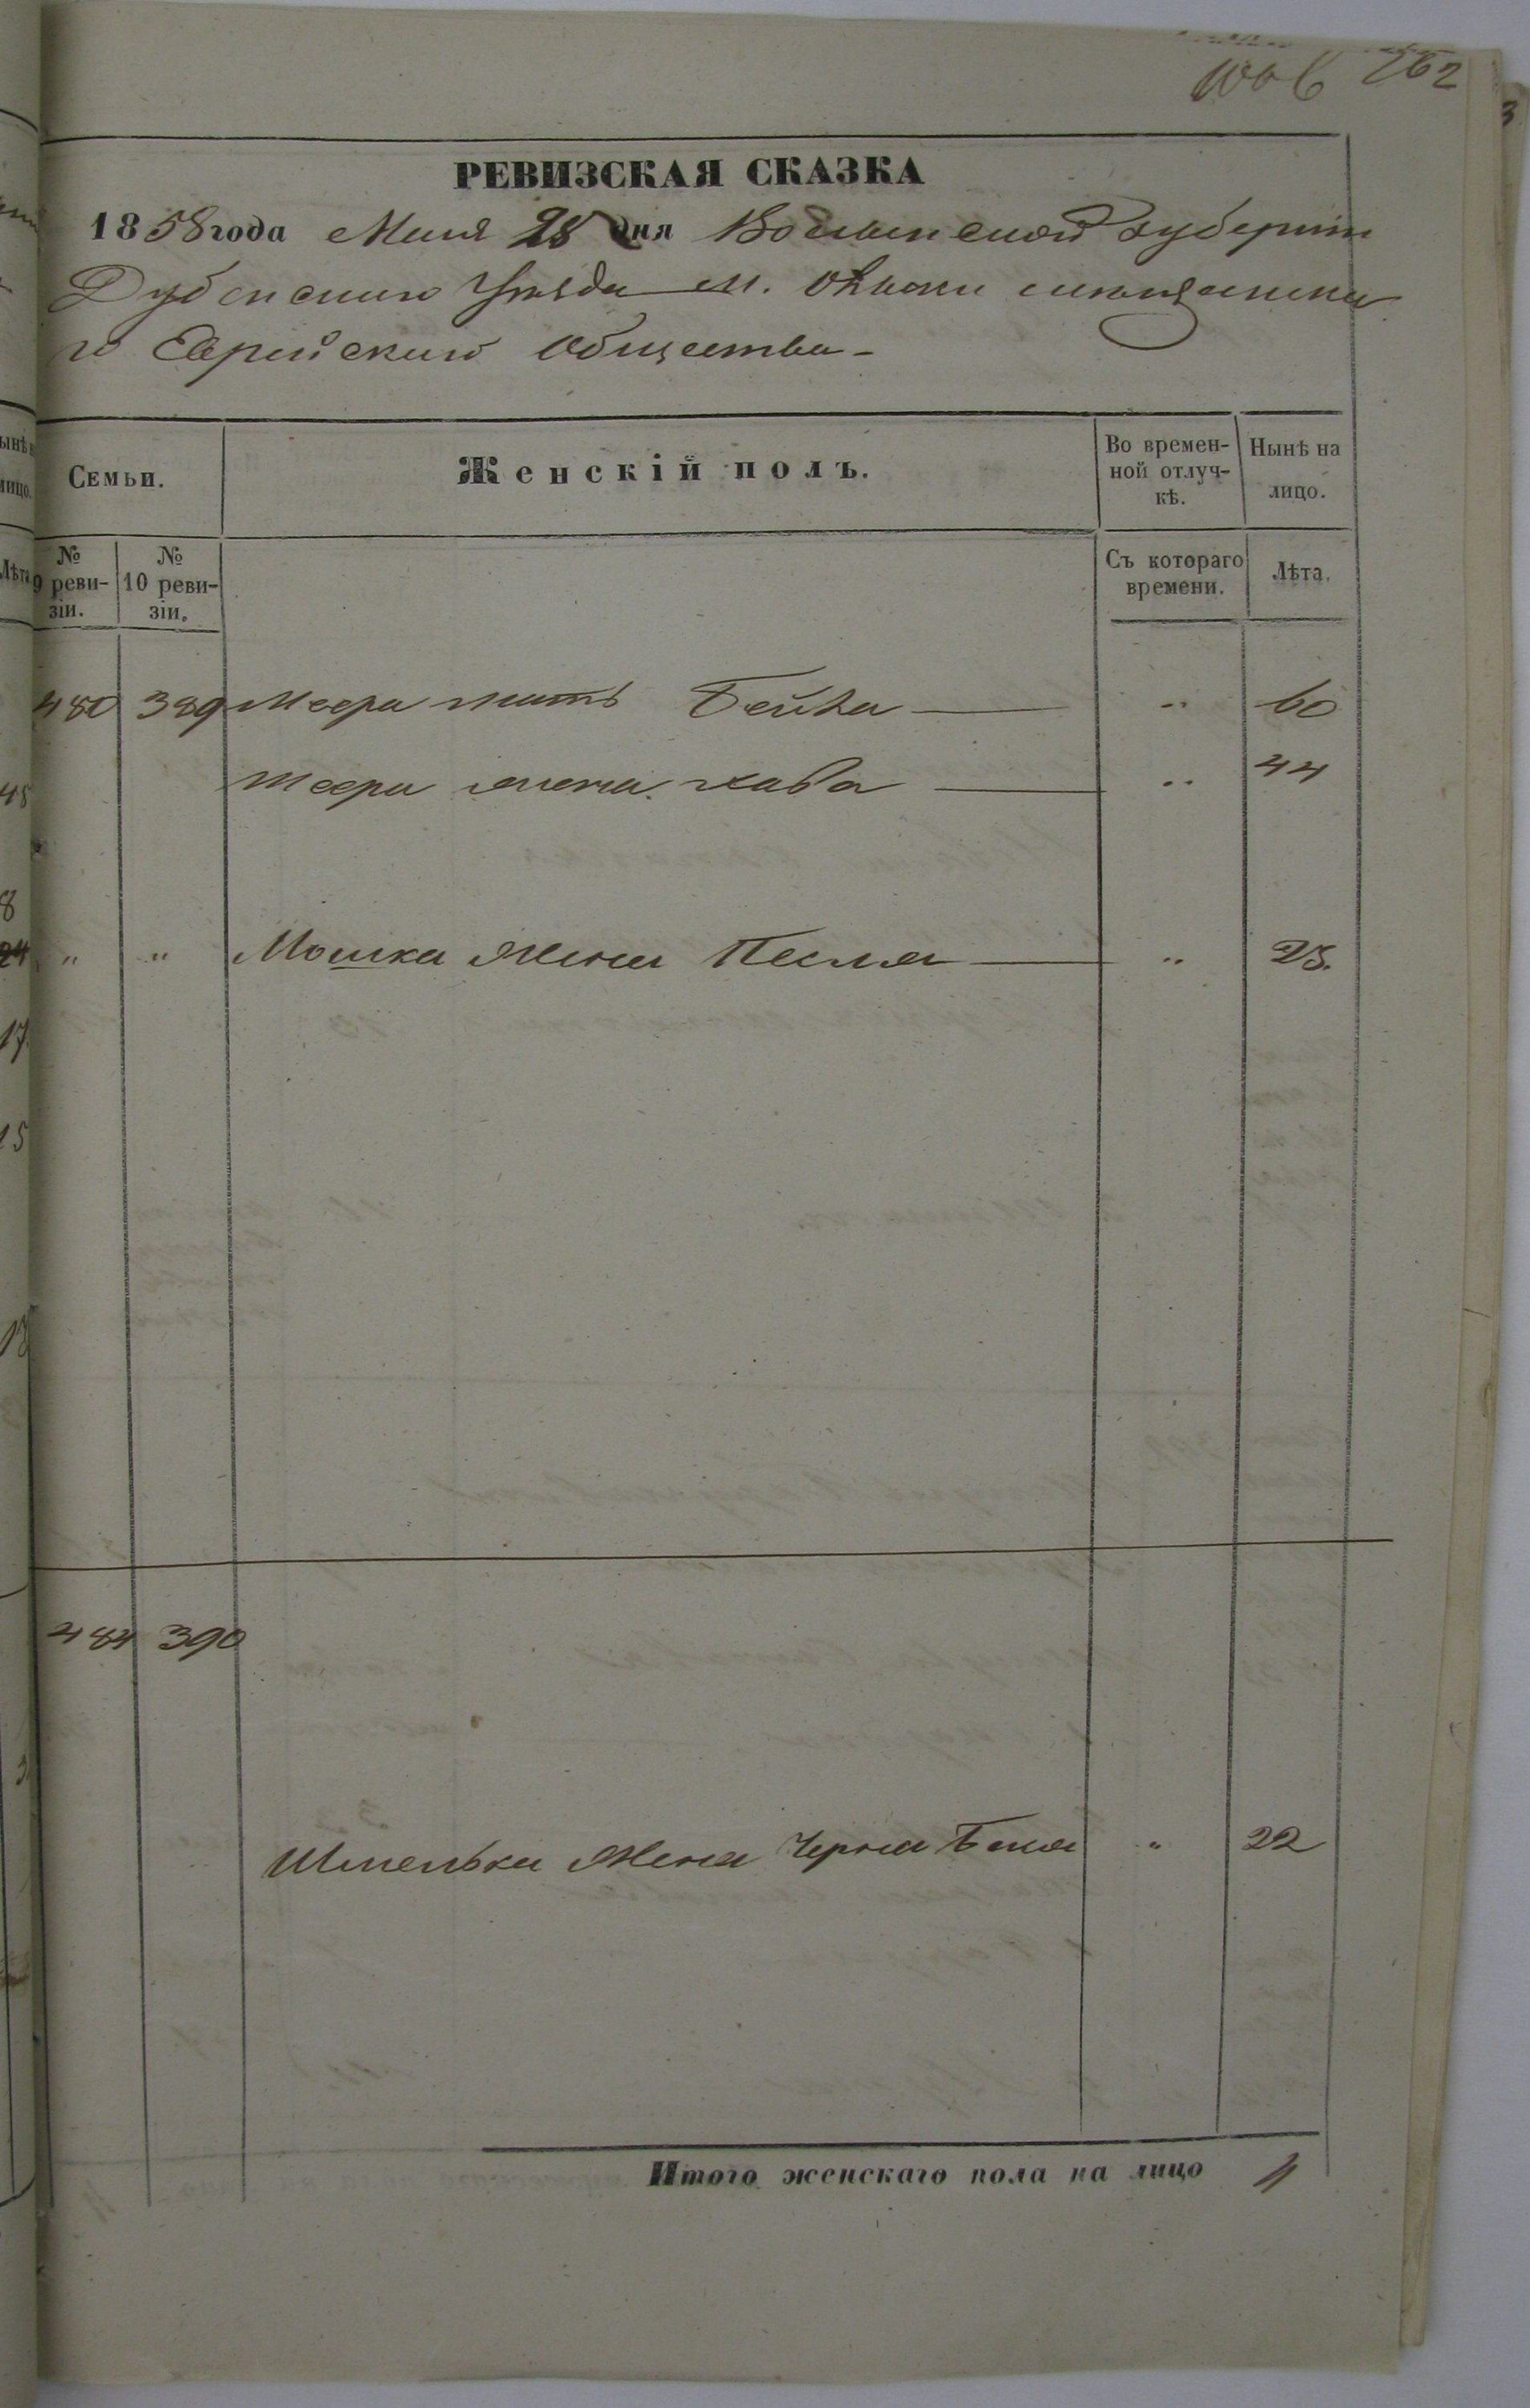 262
РЕВИЗСКАЯ СКАЗКА
1858 года Мая 28 дня Волынской Губернии
Дубенского Уезда м. мещанска
го Еврейского Общества -
Семьи.
Женскій полъ.
Во времен-
ной отлуч-
кѣ.
Нынѣ на
лицо.
№
9 реви-
зіи.
№
10 реви-
зіи.
Съ котораго
времени.
Лѣта.
480 389 Меера мать Бейла — " 60
Меера жена Хава — " 44
" " Мошка жена Песля — "
484 390
Шмелька жена Черна Бася " 22
Итого женскаго пола на лицо 4